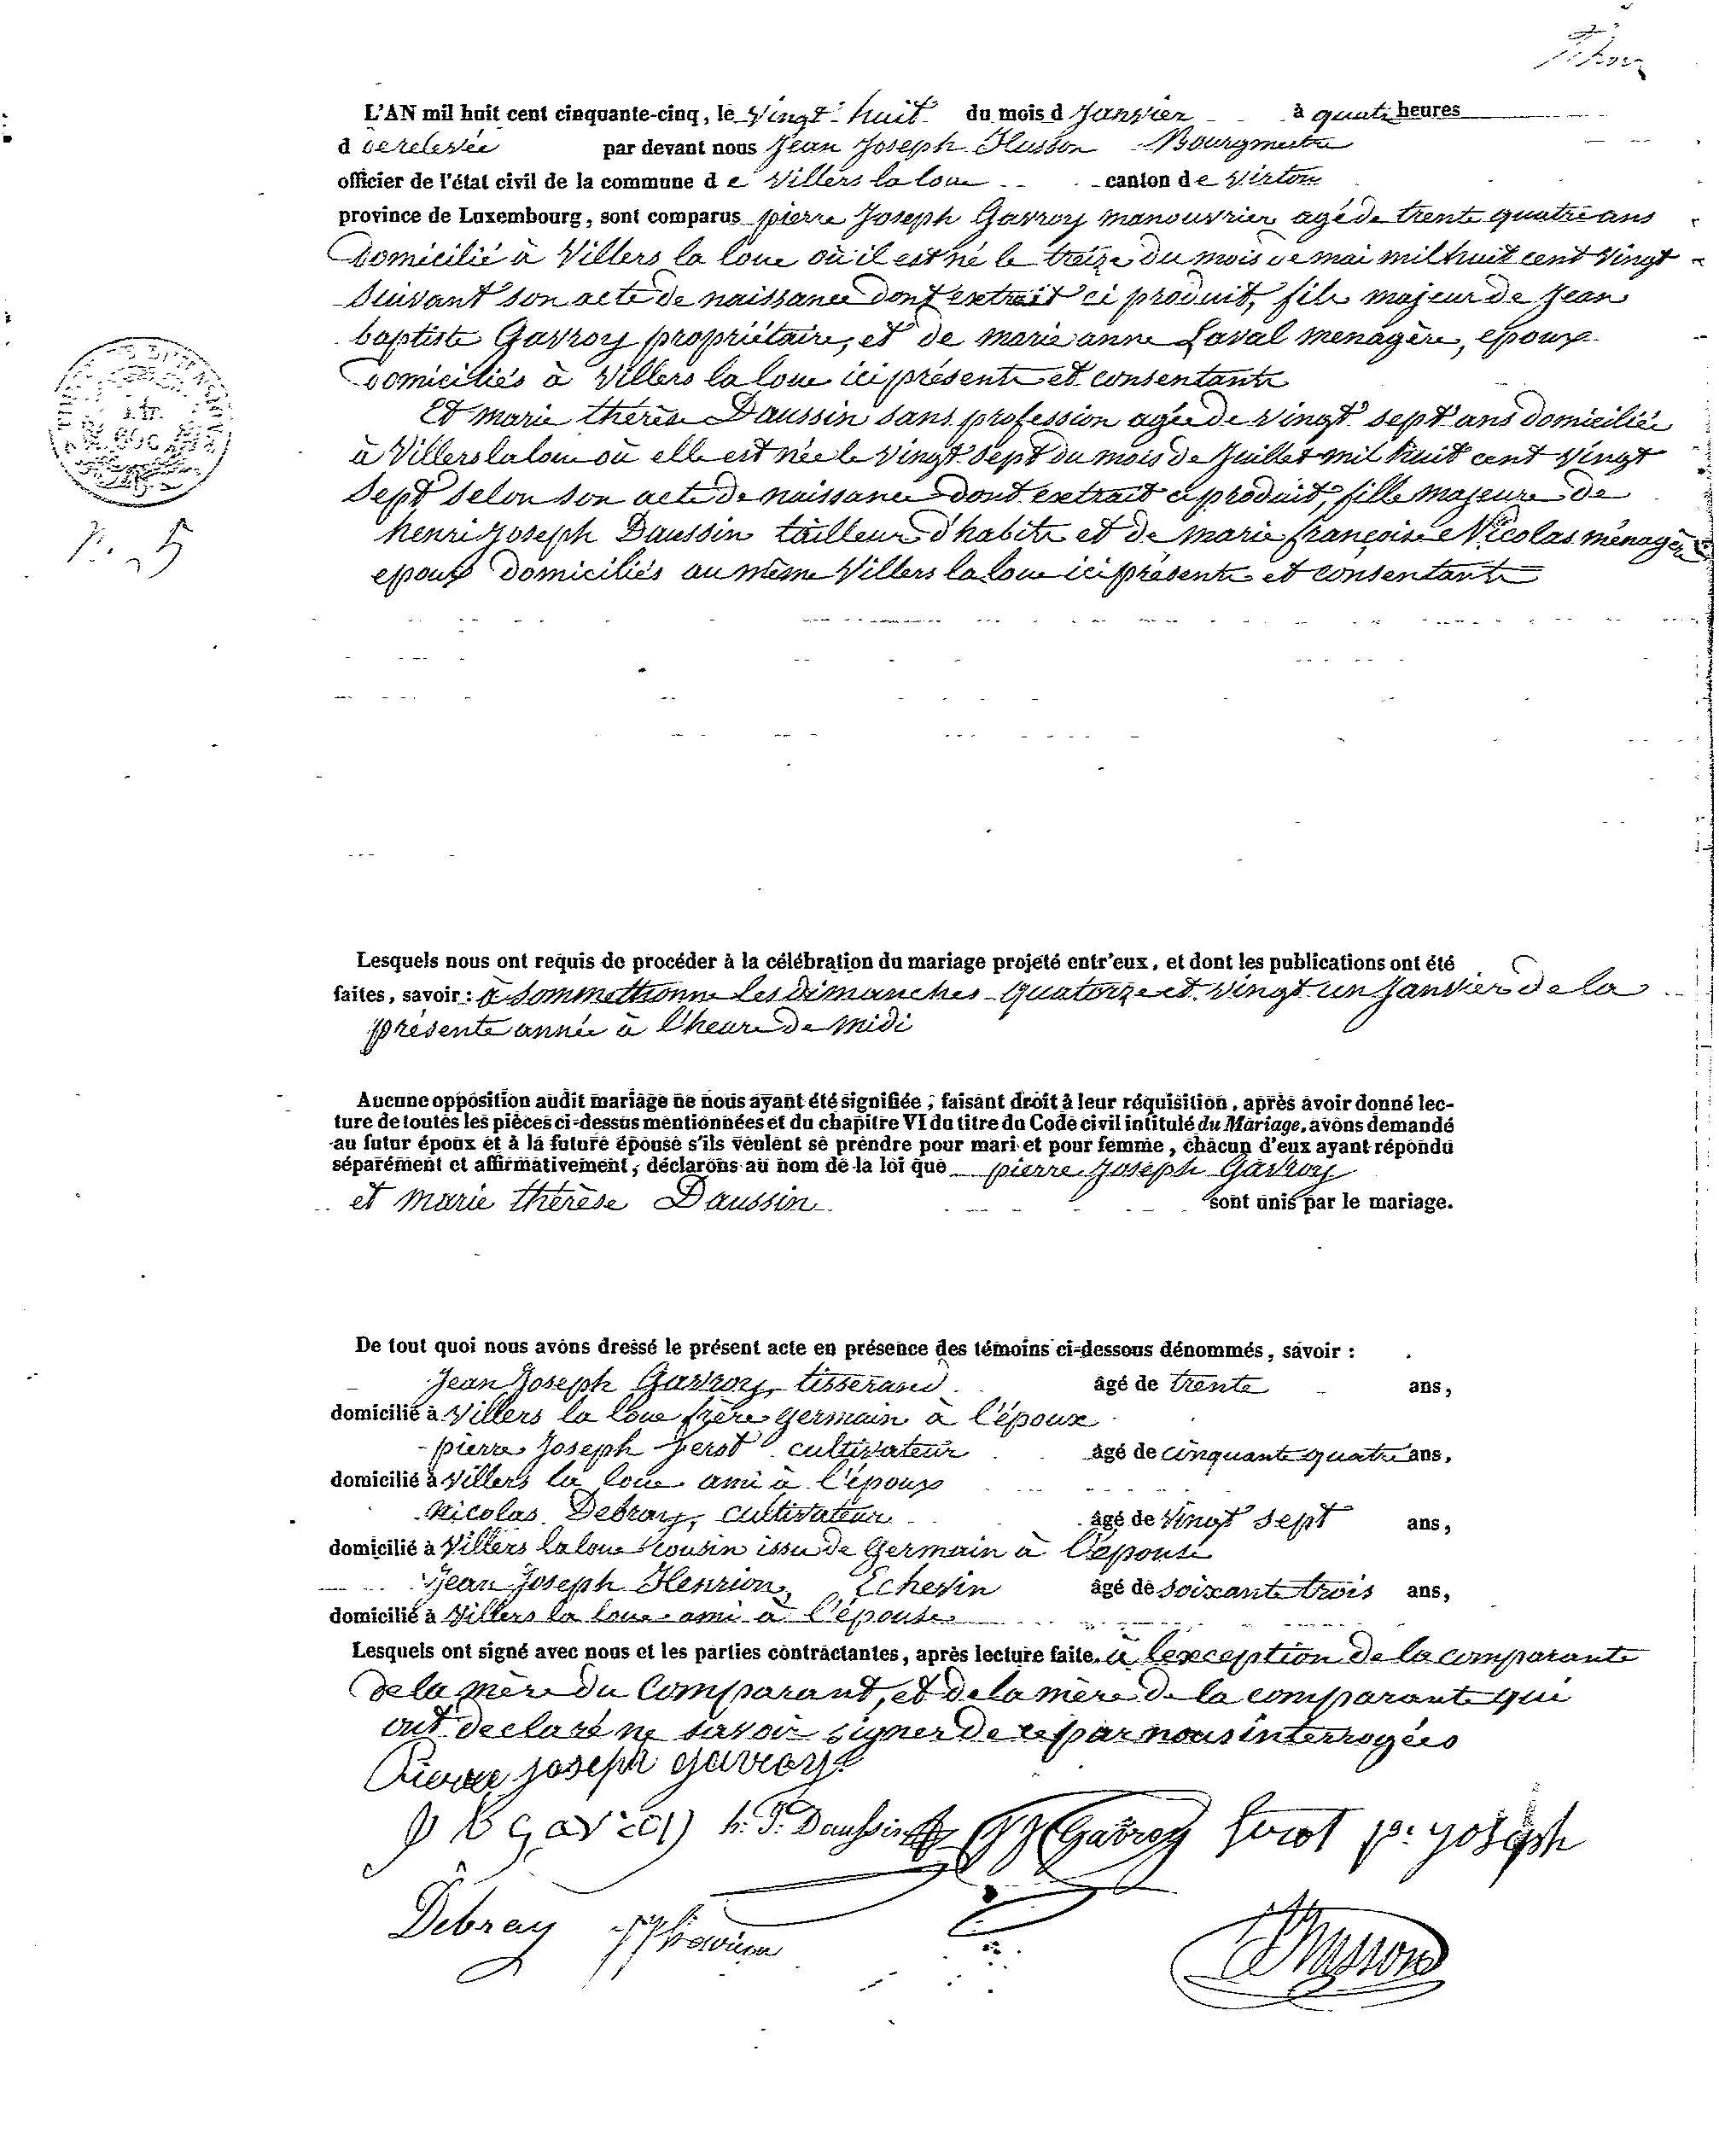 L'AN mil huit cent cinquante-cinq, le vingt huit du mois d Janvier à quatre heures
d e relevée par devant nous Jean Joseph Husson Bourgmestre
officier de l'état civil de la commune d e Villers la loue canton d e Virton
province de Luxembourg, sont comparus pierre Joseph Gavroy manouvrier agé de trente quatre ans
Domicilié à Villers la loue où il est né le treize du mois de mai mil huit cent vingt
Suivant son acte de naissance dont extrait ci produit, fils majeur de Jean
baptiste Gavroy propriétaire, et de marie anne Laval menagère, epoux
Domiciliés à Villers la loue ici présents et consentants
Et marie thérèse Daussin sans profession agée de vingt sept ans domiciliée
à Villers la loue où elle est née le vingt sept du mois de Juillet mil huit cent vingt
Sept selon son acte de naissance dont extrait ci produit, fille majeure de
henri Joseph Daussin tailleur d'habits et de marie françoise Nicolas ménagère
N. 5
epoux domiciliés au même Villers la loue ici présents et consentants
Lesquels nous ont requis de procéder à la célébration du mariage projeté entr'eux, et dont les publications ont été
faites, savoir : à Sommethonne Les Dimanches quatorze et vingt un Janvier de la
présente année à l'heure de midi
Aucune opposition audit mariage ne nous ayant été signifiée, faisant droit à leur réquisition, après avoir donné lec-
ture de toutes les pièces ci-dessus mentionnées et du chapitre VI du titre du Code civil intitulé du Mariage, avons demandé
au futur époux et à la future épouse s'ils veulent se prendre pour mari et pour femme, chacun d'eux ayant répondu
séparément et affirmativement, déclarons au nom de la loi que pierre Joseph Gavroy
et marie thérèse Daussin sont unis par le mariage.
De tout quoi nous avons dressé le présent acte en présence des témoins ci-dessous dénommés, savoir :
Jean Joseph Gavroy, tisserand âgé de trente ans,
domicilié à Villers la loue frère germain à l'époux
pierre Joseph Jerot cultivateur âgé de cinquante quatre ans,
domicilié à Villers la loue ami à l'époux
Nicolas Debray, cultivateur âgé de vingt sept ans,
domicilié à Villers la loue cousin issu de Germain à l'épouse
Jean Joseph Henrion, Echevin âgé de soixante trois ans,
domicilié à Villers la loue ami à l'épouse
Lesquels ont signé avec nous et les parties contractantes, après lecture faite, à l'exception de la comparante
de la mère du Comparant, et de la mère de la comparante qui
ont declaré ne savoir signer de ce par nous interrogées
Pierre joseph gavroy
J B gavroy h. J. Daussin JJ Gavroy Jerot pre joseph
Debray JJ henrion Husson